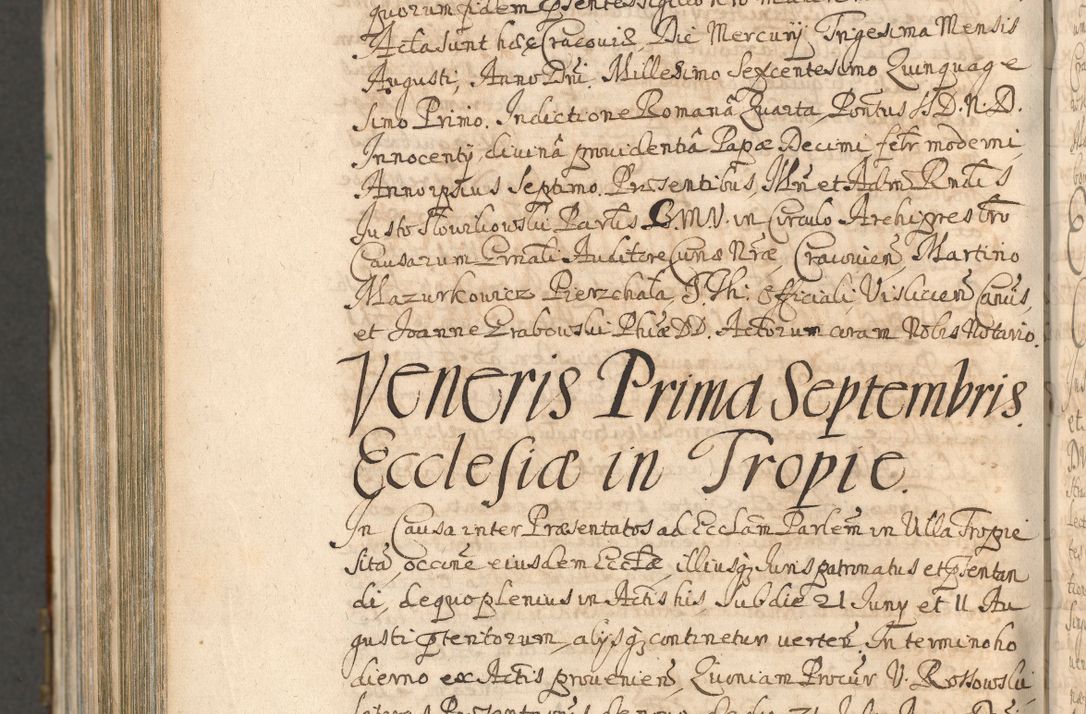 Acta sunt hæc Cracoviæ, Die Mercurij Trigesima Mensis
Augusti, Anno Dni. Millesimo Sexcentesimo Quinquage
simo Primo. Indictione Romanâ Quarta, Pontus SSD. N. D.
Innocentij divinâ providentiâ Papæ Decimi felr moderni,
Anno ipsius Septimo. Præsentibus, Mn et Adm Rndis
Justo Slowikowski Parlis B.M.V. in Circulo Archipresbro
Causarum Grnali Auditore Curiæ Nræ, Cracovien, Martino
Mazurkowicz Pierzchała, S. Th. Officiali Vislicien Canus,
et Joanne Grabowski Phiæ DD. Actorum coram Nobis Notario.
Veneris Prima Septembris.
Ecclesiæ in Tropie.
In Causa inter Præsentatos ad Ecclam Parlem in Villa Tropie
sitã, occõne eiusdem Ecclæ, illiusq Juris patronatus et psentan
di, de quo plenius in Actis his, sub die 21 Juny et 11 Au
gusti pteritorum, alysq continetur verten. In termino ho
dierno ex Actis provenien, Quoniam Procur V. Rossowski